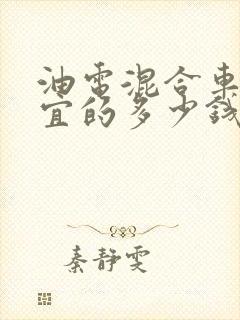 油电混合车
宜的多少钱
秦静雯